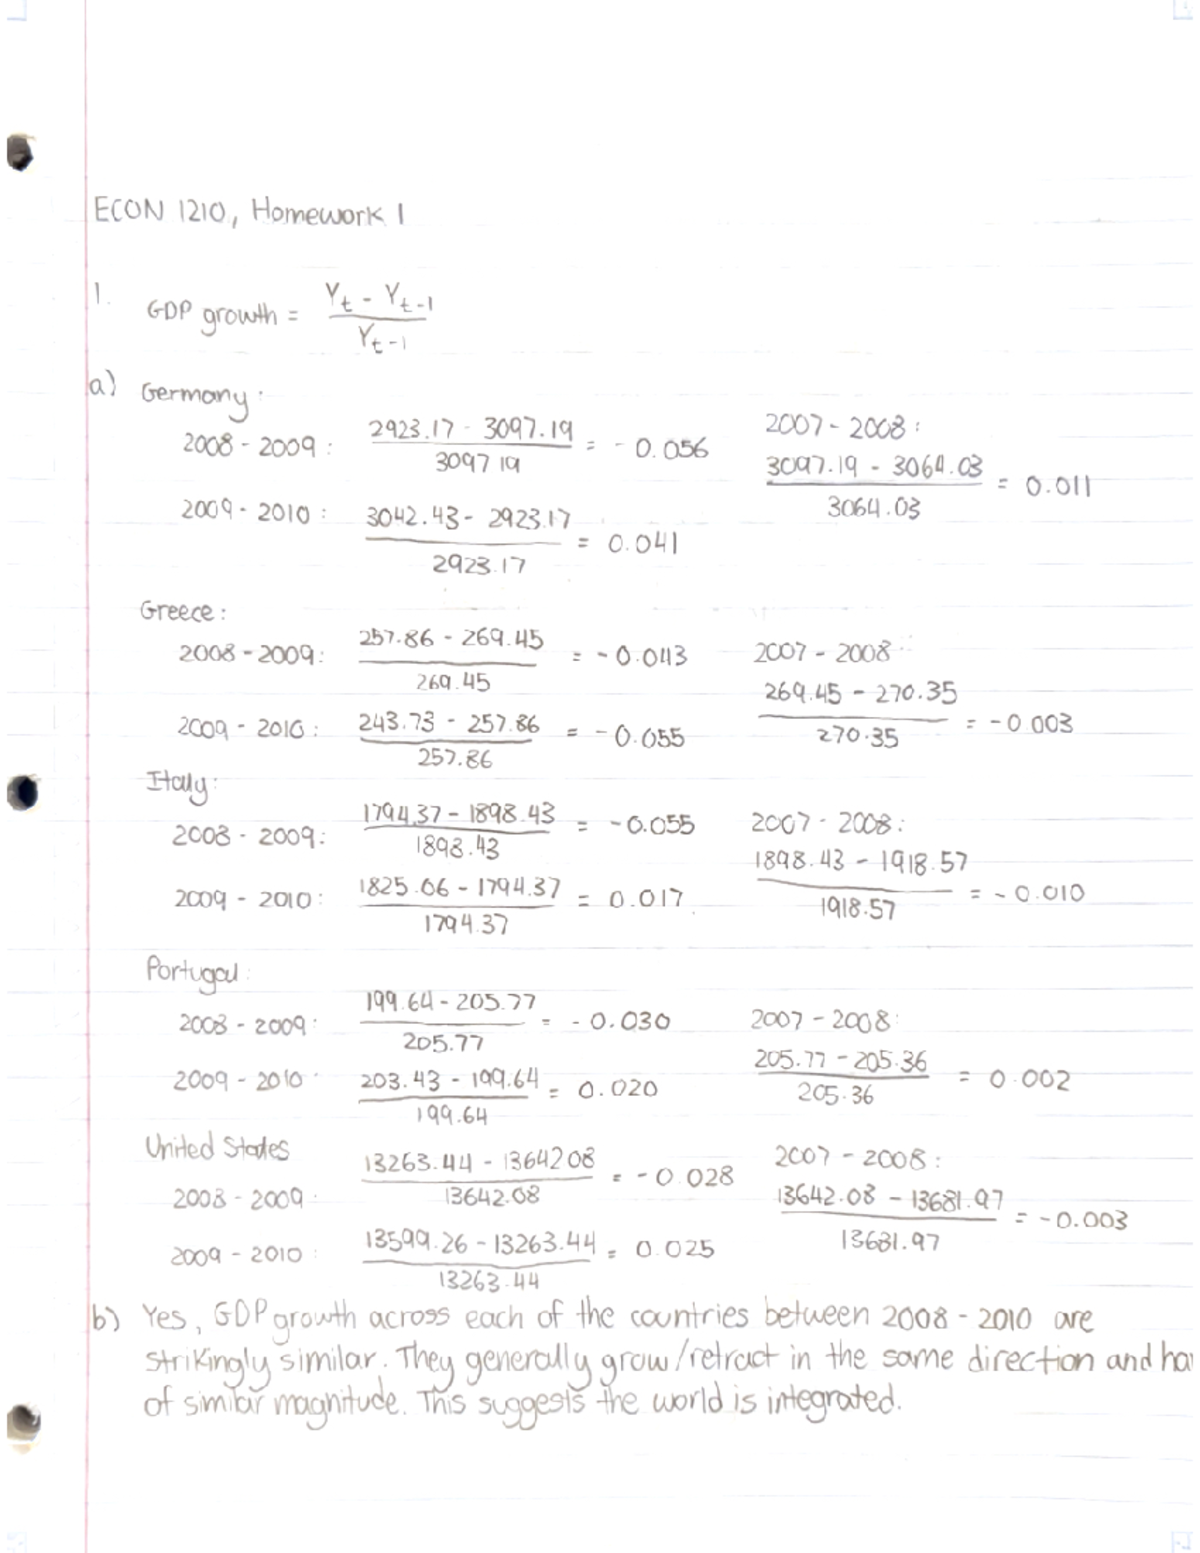 ECON 1210, Homework 1
1. GDP growth = (Y_t - Y_t-1) / Y_t-1
a) Germany:
2008 - 2009: (2923.17 - 3097.19) / 3097.19 = - 0.056
2007 - 2008: (3097.19 - 3064.03) / 3064.03 = 0.011
2009 - 2010: (3042.43 - 2923.17) / 2923.17 = 0.041
Greece:
2008 - 2009: (257.86 - 269.45) / 269.45 = - 0.043
2007 - 2008: (269.45 - 270.35) / 270.35 = - 0.003
2009 - 2010: (243.73 - 257.86) / 257.86 = - 0.055
Italy:
2008 - 2009: (1794.37 - 1898.43) / 1898.43 = - 0.055
2007 - 2008: (1898.43 - 1918.57) / 1918.57 = - 0.010
2009 - 2010: (1825.06 - 1794.37) / 1794.37 = 0.017
Portugal:
2008 - 2009: (199.64 - 205.77) / 205.77 = - 0.030
2007 - 2008: (205.77 - 205.36) / 205.36 = 0.002
2009 - 2010: (203.43 - 199.64) / 199.64 = 0.020
United States
2008 - 2009: (13263.44 - 13642.08) / 13642.08 = - 0.028
2007 - 2008: (13642.08 - 13681.97) / 13681.97 = - 0.003
2009 - 2010: (13599.26 - 13263.44) / 13263.44 = 0.025
b) Yes, GDP growth across each of the countries between 2008 - 2010 are
strikingly similar. They generally grow/retract in the same direction and
of similar magnitude. This suggests the world is integrated.